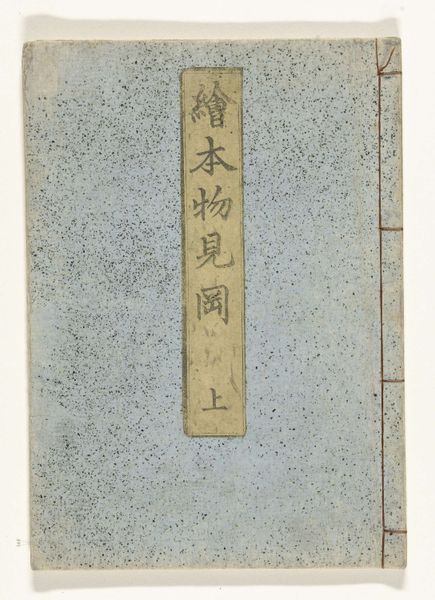 繪本物見岡 上